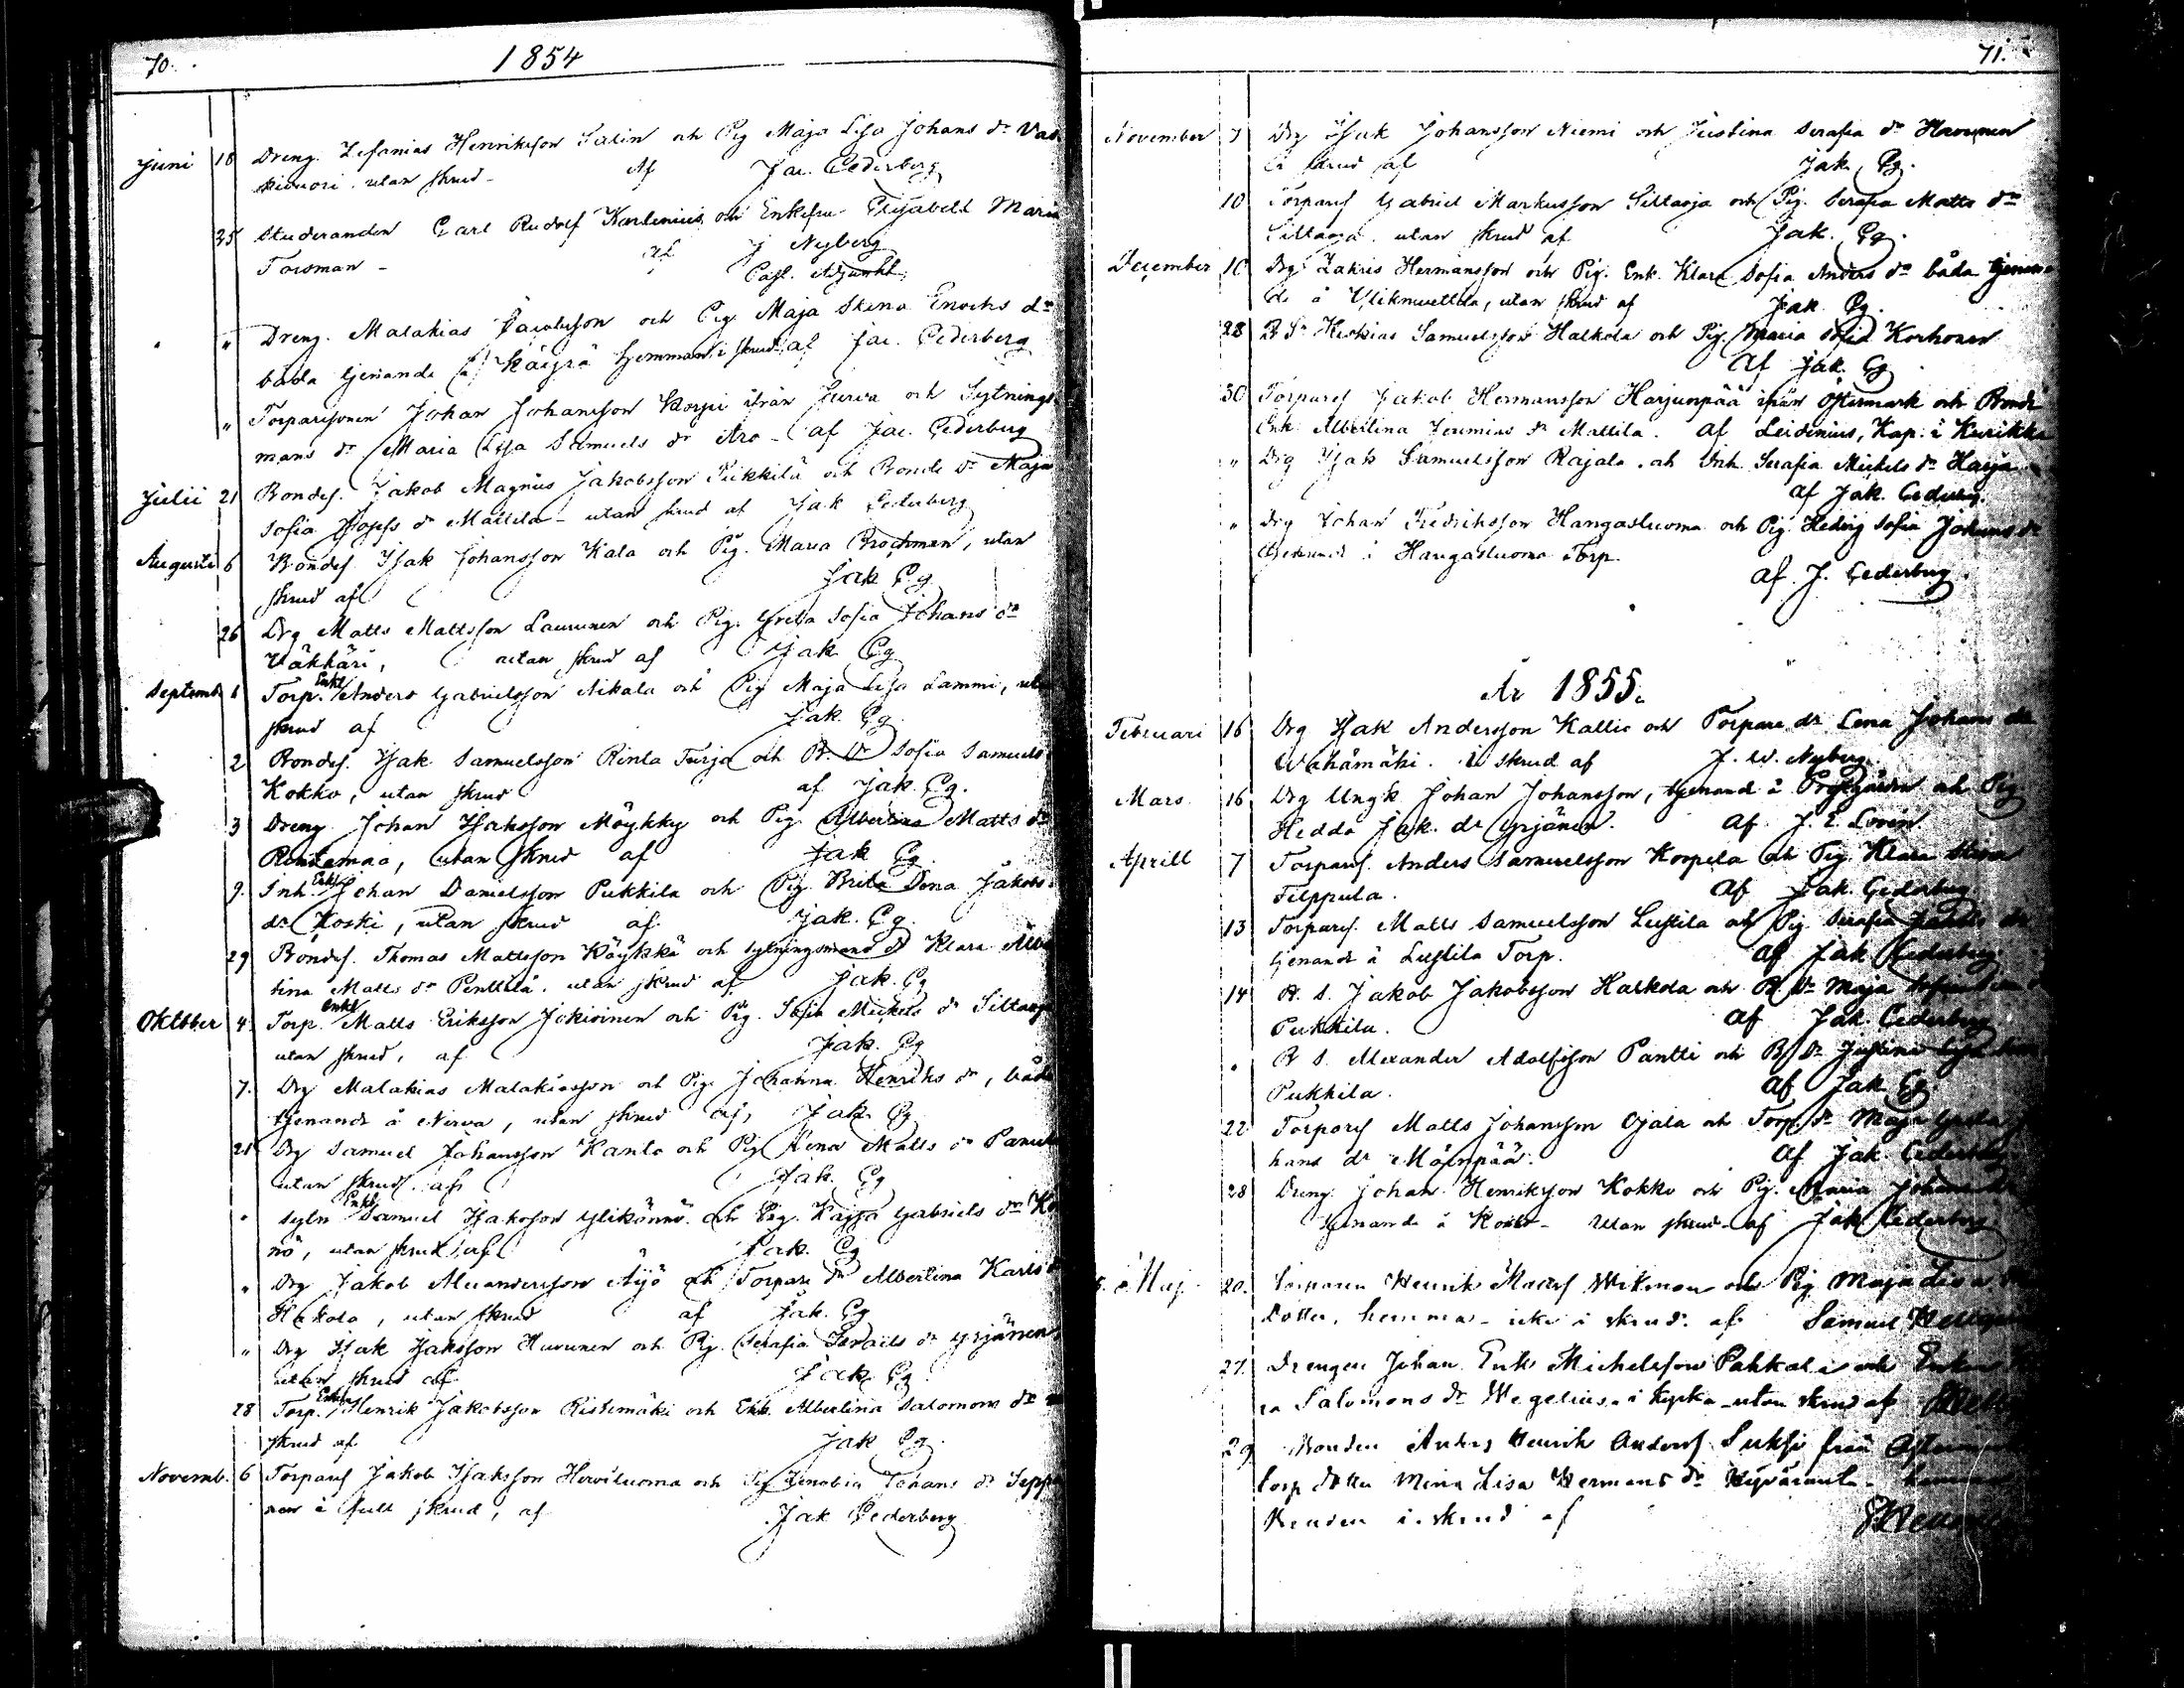 70.
1854
Juni 18 Dreng. Zefanias Henriksson Salin och Pig Maja Lisa Johans dr Vas-
kivuori. utan skrud- Af Jac. Cederberg
25 Studeranden Carl Rudolf Karlenius och Enkefru Elisabeth Maria
Forsman - af J Nyberg
Past. Adjunkt.
" " Dreng. Malakias Jacobsson och Pig Maja Stina Enochs dr
båda tjenande å Käyrä hemman i skrud af Jac. Cederberg
" Torparesonen Johan Johansson Korpi ifrån Jurva och Sytnings-
mans dr Maria Lisa Samuels dr Aro - af Jac. Cederberg
Julii 21 Bondes. Jakob Magnus Jakobsson Pukkila och Bonde dr Maja
Sofia Josefs dr Mattila - utan skrud af Jak Cederberg
Augusti 6 Bondes. Isak Johansson Kala och Pig. Maria Brochman, utan
skrud af Jak Cg
26 Drg Matts Mattsson Laurunen och Pig. Greta Sofia Johans dr
Väkhäri, utan skrud af Jak Cg
Septemb. 1 Torp. Enkl Anders Gabrielsson Aikala och Pig Maja Lisa Lammi, utan
skrud af Jak. Cg.
2 Bondes. Isak Samuelsson Rinta Turja och B. Dr Sofia Samuels
Kokko, utan skrud af Jak. Cg.
3 Dreng Johan Isaksson Möykky och Pig. Albertina Matts dr
Rantamaa, utan skrud af Jak Cg.
9. Inh Enkl Johan Danielsson Pukkila och Pig. Brita Lena Jakobs
dr Koski, utan skrud af Jak. Cg.
29 Bondes. Thomas Mattsson Köykkä och sytningsmans dr Klara Alber
tina Matts dr Penttilä. utan skrud af Jak. Cg
Oktober 4. Torp. Enkl Matts Eriksson Jokioinen och Pig. Sofia Michels dr Siltaoja
utan skrud, af Jak. Cg
7. Drg Malakias Malakiasson och Pig. Johanna Henriks dr, båda
tjenande å Nirva, utan skrud af, Jak. Cg
21 Drg Samuel Johansson Kanto och Pig Lena Matts dr
utan skrud af Jak. Cg
" Sytn Enkl Samuel Isaksson Ylikönnö och Pig. Kajsa Gabriels dr Kö
nö, utan skrud af Jak. Cg
" Drg Jakob Alexandersson Äijö och Torpare dr Albertina Karls
Hakola, utan skrud af Jak. Cg
" Drg Isak Isaksson Huvunen och Pig. Serafia Israels dr Yrjänen,
utan skrud af Jak. Cg
28 Torp. Enkl Henrik Jakobsson Ristimäki och Enk. Albertina Salomons dr
skrud af Jak Cg.
Novemb. 6 Torpares Jakob Isaksson Hirviluoma och Pig Zenobia Johans dr Seppä
nen i full skrud, af Jak Cederberg
71.
November 7 Drg Isak Johansson Niemi och Justina Serafia dr Havunen
i skrud af Jak, Cg.
10 Torpares Gabriel Markusson Siltaoja och Pig. Serafia Matts dr
Siltaoja. utan skrud af Jak. Cg.
December 10 Drg Zakris Hermansson och Pig. Enk. Klara Sofia Anders dr båda tjenan
de å Yliknuuttila, utan skrud af Jak Cg.
28 B Sn Heskias Samuelsson Halkola och Pig. Maria Sofia Korhonen
Af Jak. Cg
30 Torpares Jakob Hermansson Harjunpää ifrån Östermark och Bonde
Enk. Albertina Jeremias dr Mattila. af Leidenius, Kap. i Kurikka
" Drg Isak Samuelsson Rajala och Inh. Serafia Michels dr Harja
af Jak. Cederberg.
" Drg Johan Fredriksson Hangasluoma och Pig. Hedvig Sofia Johans dr
i Hangasluoma Torp.
af J. Cederberg.
År 1855.
Februari 16 Drg Isak Andersson Kallio och Torpare dr Lena Johans dr
Wähämäki. i skrud af J. W. Nyberg.
Mars 16 Drg Ungk Johan Johansson, tjenand å Prostgården och Pig
Hedda Jak. dr Yrjänen. af J. E. Lovén.
Aprill 7 Torpares. Anders Samuelsson Korpela och Pig Klara Stina
Filppula. af Jak. Cederberg.
13 Torpares. Matts Samuelsson Lustila och Pig Serafia Jakobs dr
tjenande å Lustila Torp. af Jak Cederberg
14 B. S. Jakob Jakobsson Halkola och B. Dr Maja
Pukkila. af Jak. Cederberg
" B S. Alexander Adolfsson Pantti och B. Dr Justina Lisa
Pukkila. af Jak Cg.
22 Torpares Matts Johansson Ojala och Torp. dr Maja Greta Jo
hans dr Mäenpää. af Jak Cederberg
28 Dreng Johan Henriksson Kokko och Pig. Maria Johans dr
tjenande å Koski - utan skrud af Jak Cederberg
Maj 20. Torparen Henrik Matts Wikman och Pig Maja Lisa
dotter, hemma - icke i skrud. af Samuel Hellgren
27. Drengen Johan Erik Michelsson Pahkala och Enk
ra Salomons dr Wegelius. i kyrka - utan skrud af
29 Bonden Anders Henrik Anders Suksi från Östermark
Torp dotter Mina Lisa Hermans dr
Bruden i skrud af